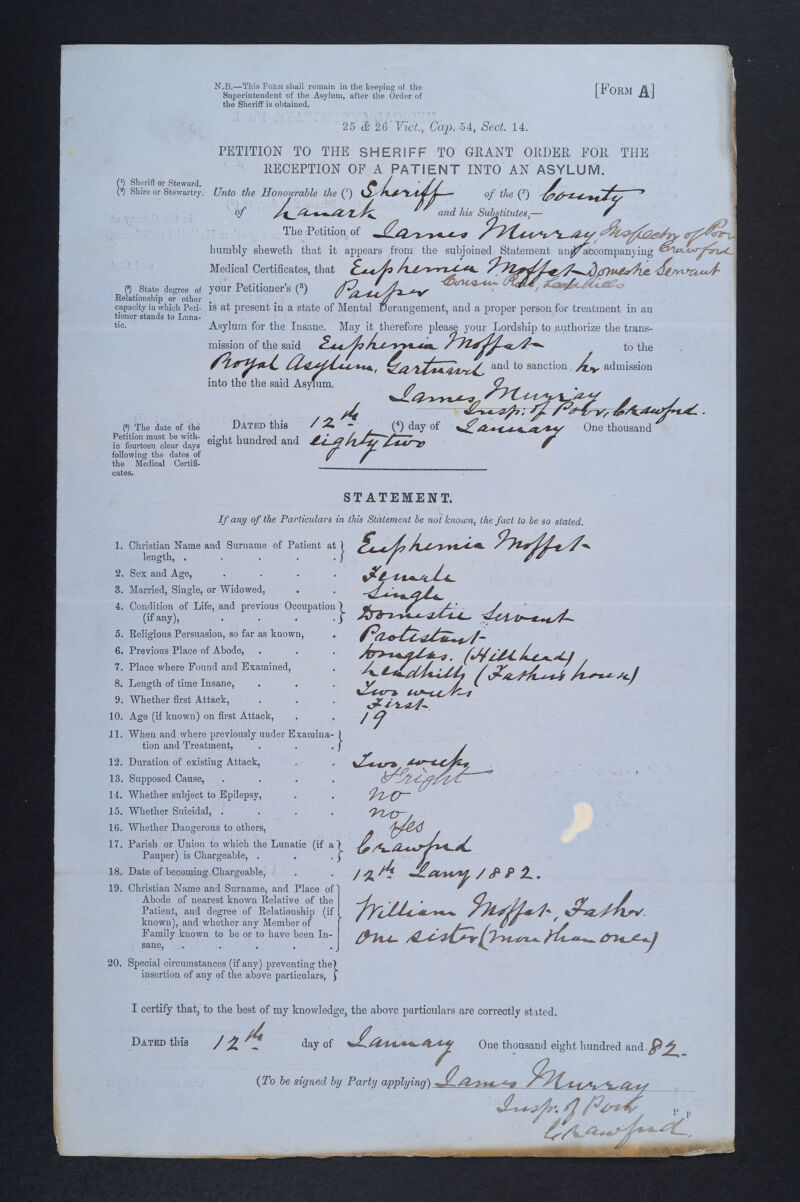 N.B.—This Form shall remain in the keeping of the
Superintendent of the Asylum, after the Order of
the Sheriff is obtained.
[Form A]
25 & 26 Vict., Cap. 54, Sect. 14.
PETITION TO THE SHERIFF TO GRANT ORDER FOR THE
RECEPTION OF A PATIENT INTO AN ASYLUM.
(1) Sheriff or Steward.
(2) Shire or Stewartry.
Unto the Honourable the (1) Sheriff of the (2) County
of Lanark and his Substitutes,—
The Petition of James Murray, Inspector of Poor
Crawford
humbly sheweth that it appears from the subjoined Statement and accompanying
Medical Certificates, that Euphemia Moffat Domestic Servant
Leadhills
(3) State degree of
Relationship or other
capacity in which Peti-
tioner stands to Luna-
tic.
your Petitioner's (3) Pauper
is at present in a state of Mental Derangement, and a proper person for treatment in an
Asylum for the Insane. May it therefore please your Lordship to authorize the trans-
mission of the said Euphemia Moffat to the
Royal Asylum, Gartnavel and to sanction her admission
into the the said Asylum.
James Murray
Insp: of Poor, Crawford.
(4) The date of the
Petition must be with-
in fourteen clear days
following the dates of
the Medical Certifi-
cates.
Dated this 12th (4) day of January One thousand
eight hundred and eighty two
STATEMENT.
If any of the Particulars in this Statement be not known, the fact to be so stated.
1. Christian Name and Surname of Patient at
length, . Euphemia Moffat
2. Sex and Age, Female
3. Married, Single, or Widowed, Single
4. Condition of Life, and previous Occupation
(if any), Domestic Servant
5. Religious Persuasion, so far as known, Protestant
6. Previous Place of Abode, Douglas. (Hillhead)
7. Place where Found and Examined, Leadhills (Fathers house)
8. Length of time Insane, Two weeks
9. Whether first Attack, First
10. Age (if known) on first Attack, 19
11. When and where previously under Examina-
tion and Treatment,
12. Duration of existing Attack, Two weeks
13. Supposed Cause, Fright
14. Whether subject to Epilepsy, no
15. Whether Suicidal, no
16. Whether Dangerous to others, Yes
17. Parish or Union to which the Lunatic (if a
Pauper) is Chargeable, Crawford
18. Date of becoming Chargeable, 12th Jany 1882.
19. Christian Name and Surname, and Place of
Abode of nearest known Relative of the
Patient, and degree of Relationship (if
known), and whether any Member of
Family known to be or to have been In-
sane, William Moffat, Father.
One sister (more than once)
20. Special circumstances (if any) preventing the
insertion of any of the above particulars,
I certify that, to the best of my knowledge, the above particulars are correctly stated.
Dated this 12th day of January One thousand eight hundred and 82.
(To be signed by Party applying) James Murray
Insp: of Poor
Crawford.
P P